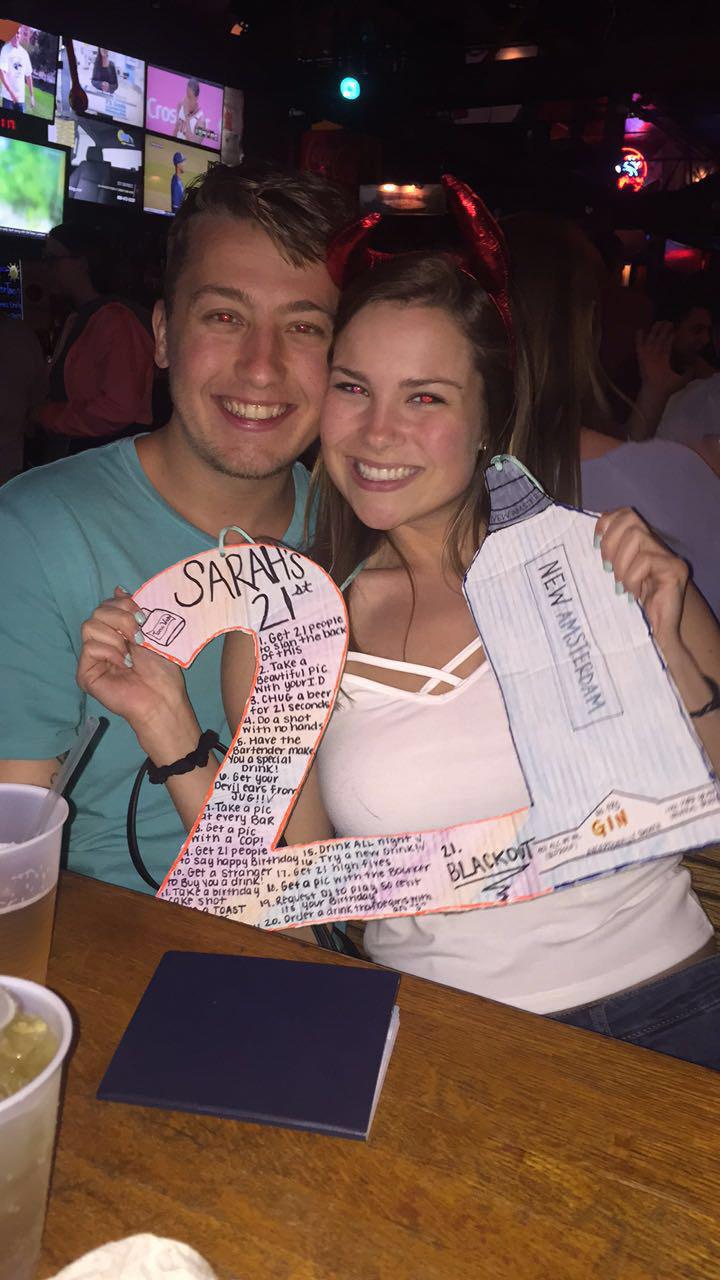 Cros
SARAH'S
21st
1. Get 21 people
to sign the back
of this
2. Take a
Beautiful pic
with your I.D
3. CHUG a beer
for 21 seconds
4. Do a shot
with no hands
5. Have the
Bartender make
you a special
Drink!
6. Get your
Devil ears from
JUG!!
7. Take a pic
at every BAR
8. Get a pic
with a COP!
9. Get 21 people
to say happy Birthday
10. Get a stranger
to Buy you a drink!
11. Take a birthday
cake shot
a TOAST
15. Drink ALL night
16. Try a new Drink
17. Get 21 high fives
18. Get a pic with the Bouncer
19. Request DJ to play 50 cent
its your Birthday
20. Order a drink that begins with
21.
BLACKOUT
NEW AMSTERDAM
GIN